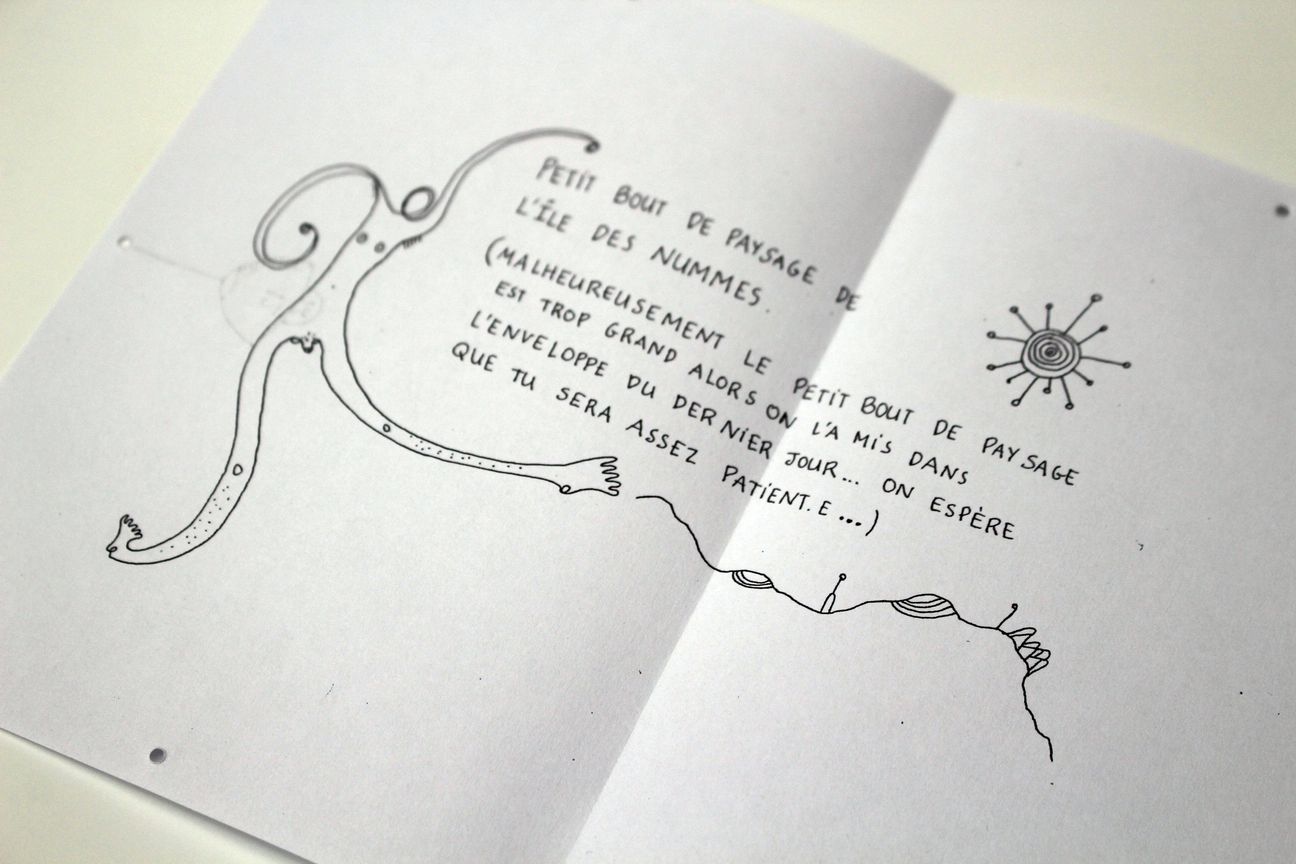 PETIT BOUT DE PAYSAGE DE
L'ÎLE DES NUMMES.
(MALHEUREUSEMENT LE PETIT BOUT DE PAYSAGE
EST TROP GRAND ALORS ON L'A MIS DANS
L'ENVELOPPE DU DERNIER JOUR... ON ESPÈRE
QUE TU SERA ASSEZ PATIENT.E ...)